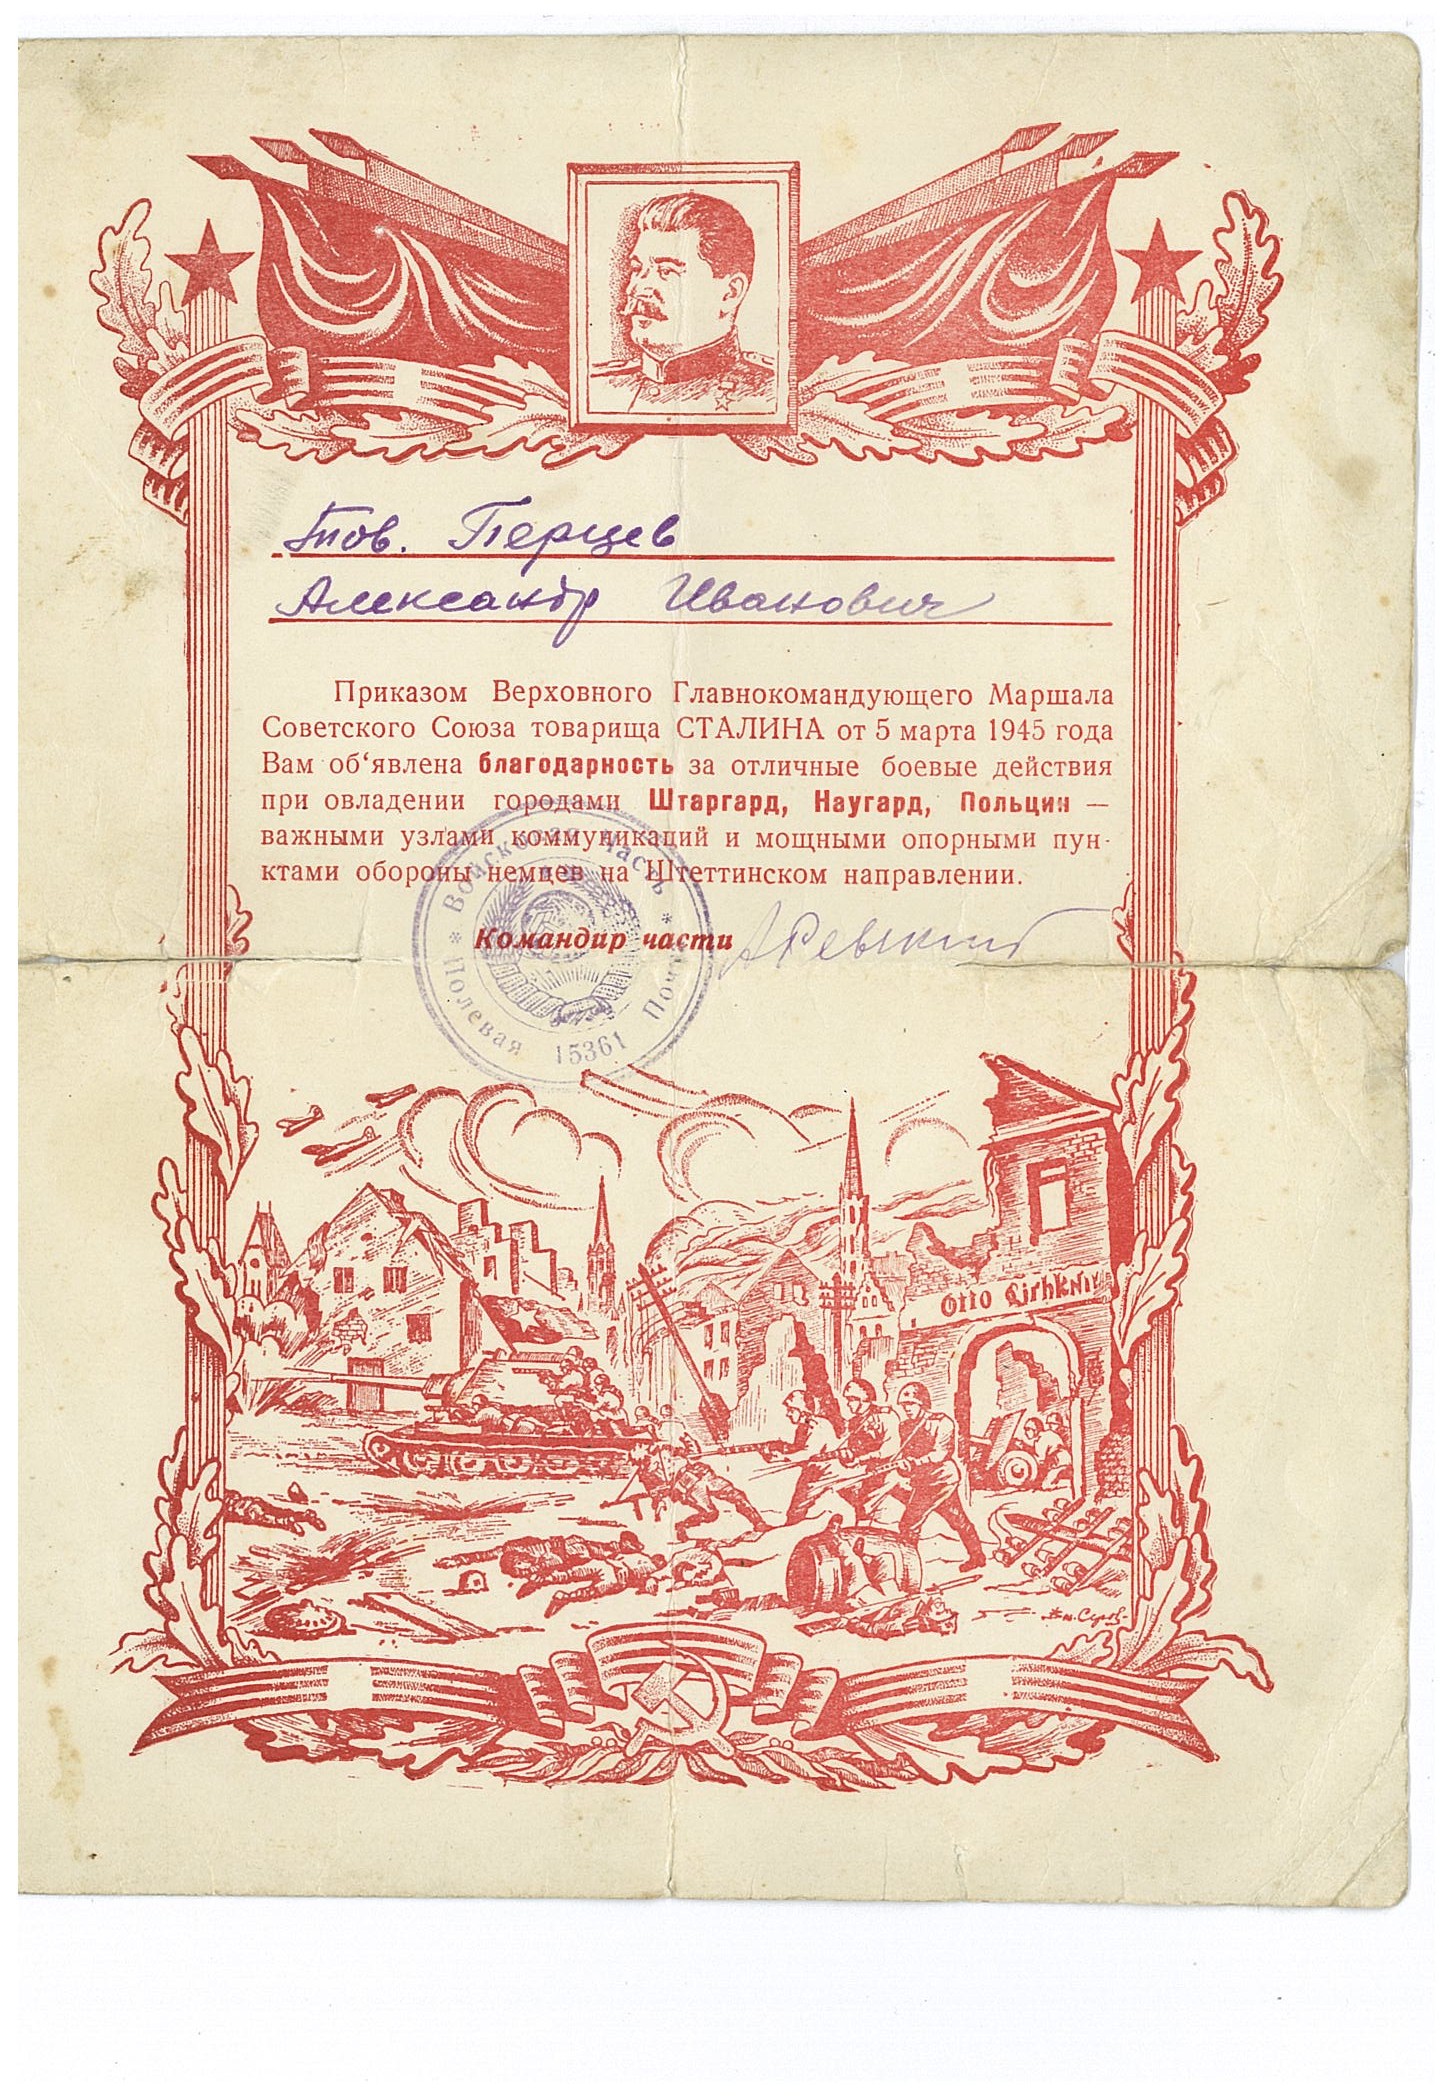 Тов. Перцев
Александр Иванович
Приказом Верховного Главнокомандующего Маршала
Советского Союза товарища СТАЛИНА от 5 марта 1945 года
Вам об‘явлена благодарность за отличные боевые действия
при овладении городами Штаргард, Наугард, Польцин —
важными узлами коммуникаций и мощными опорными пун-
ктами обороны немцев на Штеттинском направлении.
Командир части
* Войсковая часть *
Полевая 15361 Почта
Otto